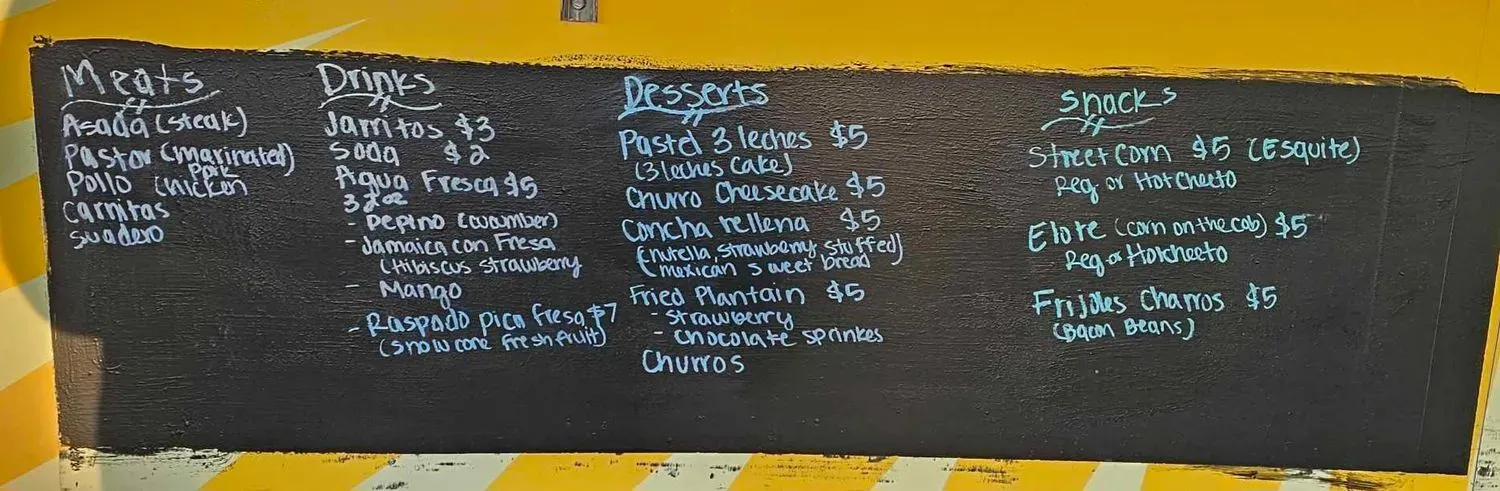 Meats
Asada (steak)
Pastor (marinated)
Pork
Pollo Chicken
Carnitas
Suadero
Drinks
Jarritos $3
Soda $2
Agua Fresca $5
32oz
- Pepino (cucumber)
- Jamaica con Fresa
(Hibiscus strawberry
- Mango
- Raspado pica fresa $7
(snow cone fresh fruit)
Desserts
Pastel 3 leches $5
(3 leches cake)
Churro Cheesecake $5
Concha rellena $5
(nutella, strawberry stuffed)
(mexican sweet bread
Fried Plantain $5
- Strawberry
- Chocolate sprinkes
Churros
Snacks
Street Corn $5 (Esquite)
Reg or Hot Cheeto
Elote (corn on the cob) $5
Reg or Hot cheeto
Frijoles Charros $5
(Bacon Beans)